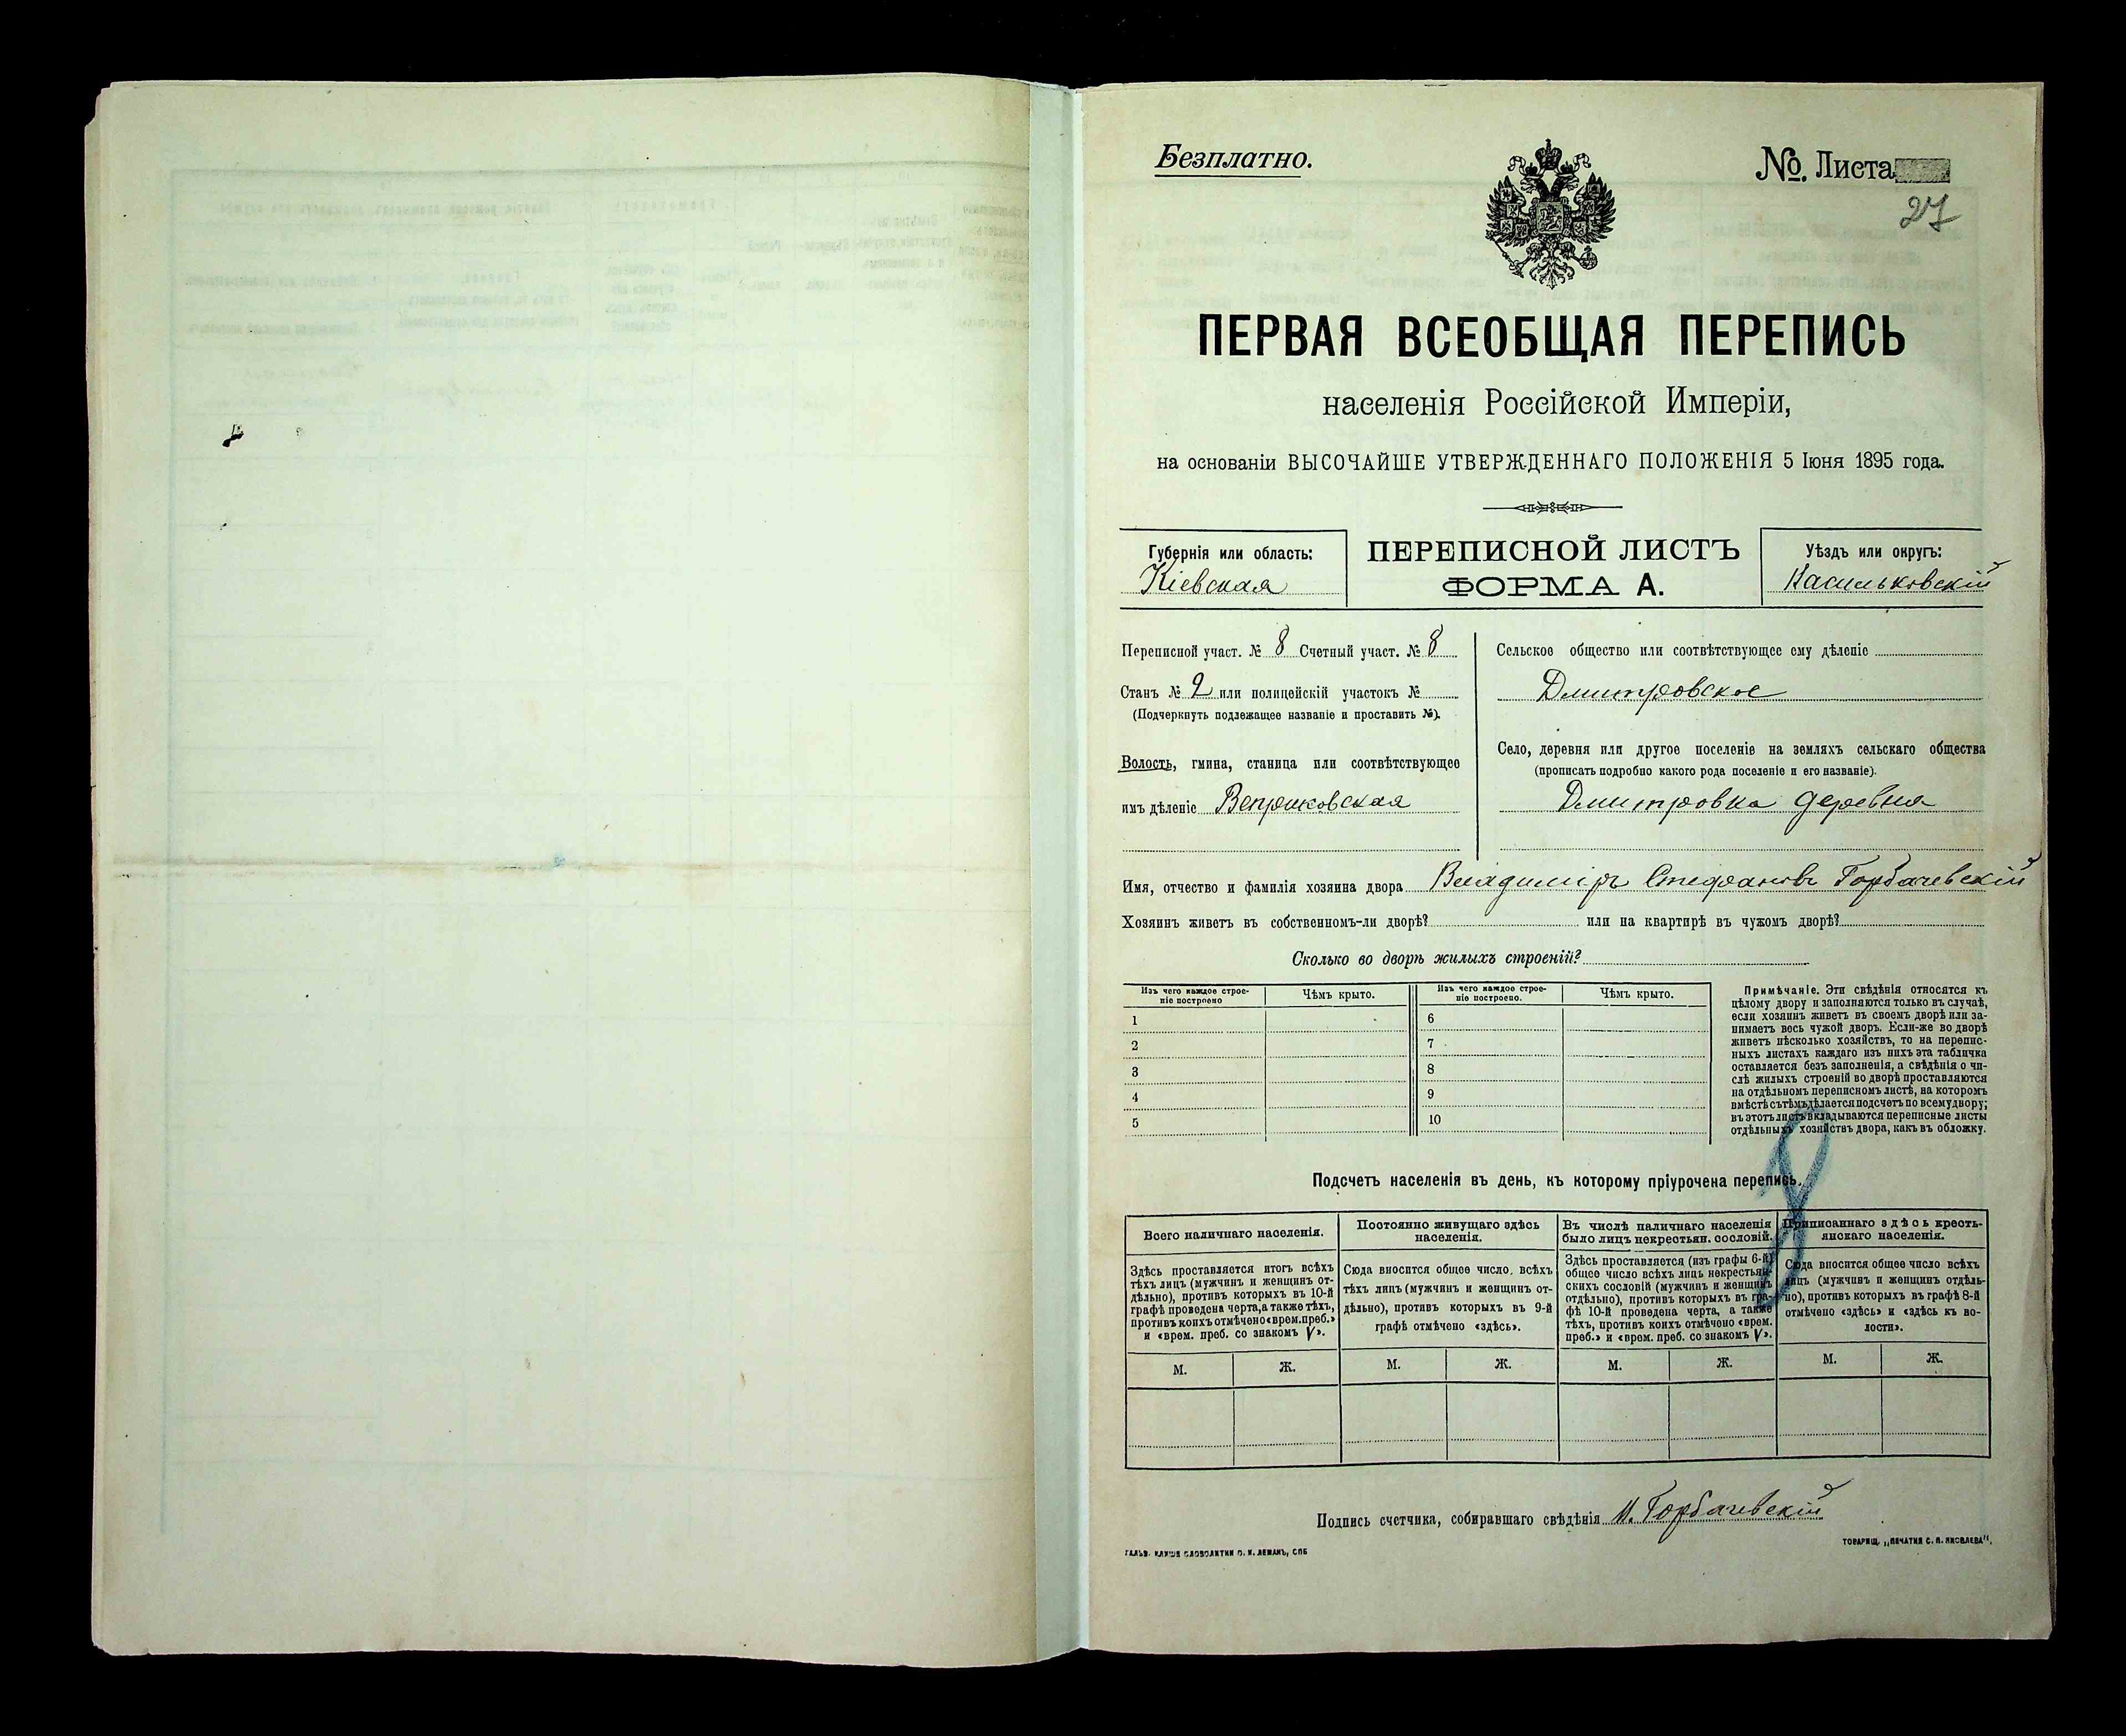 Безплатно.
№. Листа
27
ПЕРВАЯ ВСЕОБЩАЯ ПЕРЕПИСЬ
населенія Россійской Имперіи,
на основаніи ВЫСОЧАЙШЕ УТВЕРЖДЕННАГО ПОЛОЖЕНІЯ 5 Іюня 1895 года.
Губернія или область:
Кіевская
ПЕРЕПИСНОЙ ЛИСТЪ
ФОРМА А.
Уѣздъ или округъ:
Васильковскій
Переписной участ. № 8 Счетный участ. № 8
Станъ № 2 или полицейскій участокъ №
(Подчеркнуть подлежащее названіе и проставить №).
Волость, гмина, станица или соотвѣтствующее
имъ дѣленіе Веприковская
Сельское общество или соотвѣтствующее ему дѣленіе
Дмитровское
Село, деревня или другое поселеніе на земляхъ сельскаго общества
(прописать подробно какого рода поселеніе и его названіе).
Дмитровка деревня
Имя, отчество и фамилія хозяина двора Владиміръ Стефановъ Горбачевскій
Хозяинъ живетъ въ собственномъ-ли дворѣ? или на квартирѣ въ чужомъ дворѣ?
Сколько во дворѣ жилыхъ строеній?
Изъ чего каждое строе-
ніе построено
Чѣмъ крыто.
Изъ чего каждое строе-
ніе построено.
Чѣмъ крыто.
1
2
3
4
5
6
7
8
9
10
Примѣчаніе. Эти свѣдѣнія относятся къ
цѣлому двору и заполняются только въ случаѣ,
если хозяинъ живетъ въ своемъ дворѣ или за-
нимаетъ весь чужой дворъ. Если-же во дворѣ
живетъ нѣсколько хозяйствъ, то на перепис-
ныхъ листахъ каждаго изъ нихъ эта табличка
оставляется безъ заполненія, а свѣдѣнія о чи-
слѣ жилыхъ строеній во дворѣ проставляются
на отдѣльномъ переписномъ листѣ, на которомъ
вмѣстѣ съ тѣмъ дѣлается подсчетъ по всему двору;
въ этотъ листъ вкладываются переписные листы
отдѣльныхъ хозяйствъ двора, какъ въ обложку.
Подсчетъ населенія въ день, къ которому пріурочена перепись.
Всего наличнаго населенія.
Здѣсь проставляется итогъ всѣхъ
тѣхъ лицъ (мужчинъ и женщинъ от-
дѣльно), противъ которыхъ въ 10-й
графѣ проведена черта, а также тѣхъ,
противъ коихъ отмѣчено «врем. преб.»
и «врем. преб. со знакомъ V».
М.
Ж.
Постоянно живущаго здѣсь
населенія.
Сюда вносится общее число всѣхъ
тѣхъ лицъ (мужчинъ и женщинъ от-
дѣльно), противъ которыхъ въ 9-й
графѣ отмѣчено «здѣсь».
М.
Ж.
Въ числѣ наличнаго населенія
было лицъ некрестьян. сословій.
Здѣсь проставляется (изъ графы 6-й)
общее число всѣхъ лицъ некрестьян-
скихъ сословій (мужчинъ и женщинъ
отдѣльно), противъ которыхъ въ гра-
фѣ 10-й проведена черта, а также
тѣхъ, противъ коихъ отмѣчено «врем.
преб.» и «врем. преб. со знакомъ V».
М.
Ж.
Приписаннаго здѣсь кресть-
янскаго населенія.
Сюда вносится общее число всѣхъ
лицъ (мужчинъ и женщинъ отдѣль-
но), противъ которыхъ въ графѣ 8-й
отмѣчено «здѣсь» и «здѣсь къ во-
лости».
М.
Ж.
Подпись счетчика, собиравшаго свѣдѣнія И. Горбачевскій
ГАЛЬВ. КЛИШЕ СЛОВОЛИТНИ О. И. ЛЕМАНЪ, СПБ
ТОВАРИЩ. „ПЕЧАТНЯ С. П. ЯКОВЛЕВА".